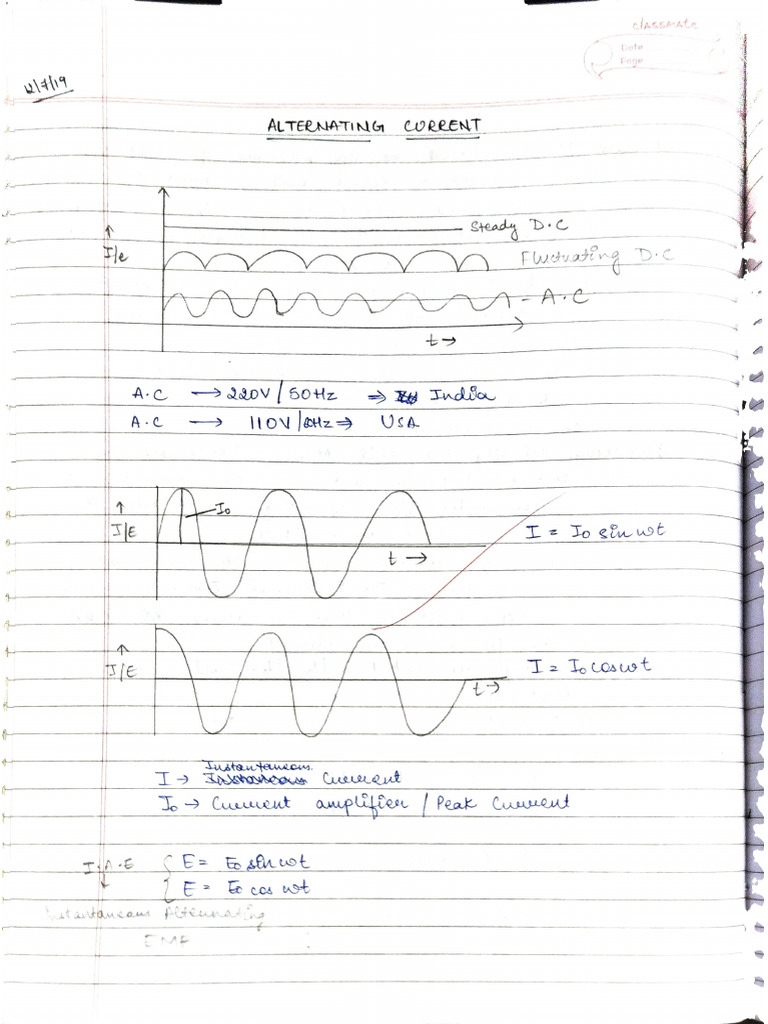 classmate
Date
Page
12/7/19
ALTERNATING CURRENT
Steady D.C
I/e
Fluctuating D.C
A.C
t →
A.C → 220V / 50Hz ⇒ India
A.C → 110V / 60Hz ⇒ USA
I0
I/E
I = I0 sin wt
t →
I = I0 cos wt
I/E
t →
Instantaneous
I → Current
I0 → Current amplifier / Peak Current
I.A.E { E = E0 sin wt
E = E0 cos wt
Instantaneous Alternating
EMF